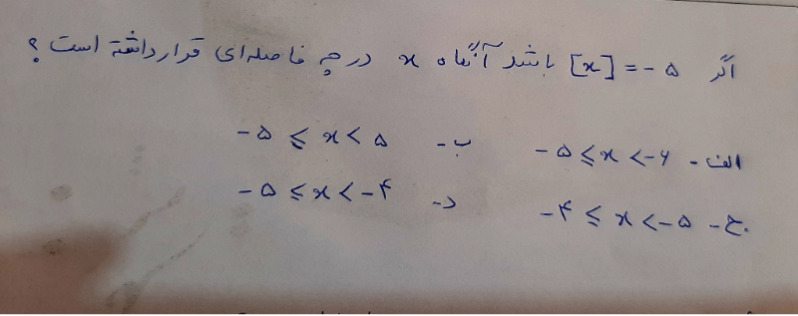 اگر [x] = -۵ باشد آنگاه x در چه فاصله‌ای قرار داشته است ؟
الف - -۵ ≤ x < -۶ ب - -۵ ≤ x < ۵
ج - -۴ ≤ x < -۵ د - -۵ ≤ x < -۴